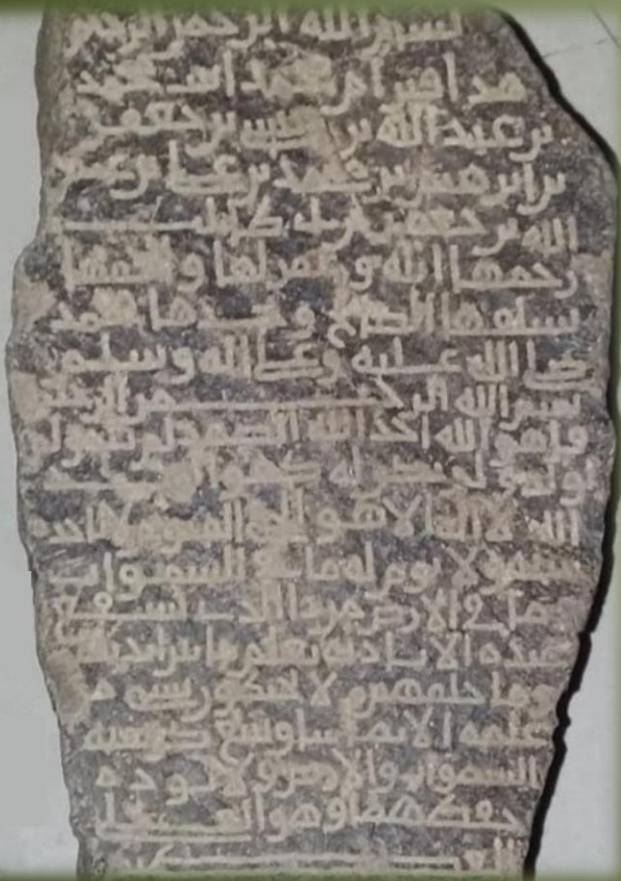 بسم الله الرحمن الرحيم
هذا قبر ام محمد ابنت محمد
بن عبد الله بن بن جعفر
بن ابرهيم بن محمد بن علي بن عبد
الله بن جعفر بن ابي طالب
رحمها الله و غفر لها و الحقها
بسلفها الصالح وجدها محمد
صلى الله عليه وعلى اله وسلم
بسم الله الرحمن الرحيم
قل هو الله احد الله الصمد لم يلد ولم
يولد ولم يكن له كفوا احد
الله لا اله الا هو الحي القيوم لا تاخذه
سنة ولا نوم له ما في السموات
وما في الارض من ذا الذي يشفع
عنده الا باذنه يعلم ما بين ايديهم
وما خلفهم ولا يحيطون بشي من
علمه الا بما شا وسع كرسيه
السموات والارض ولا يوده
حفظهما وهو العلي
العظيم